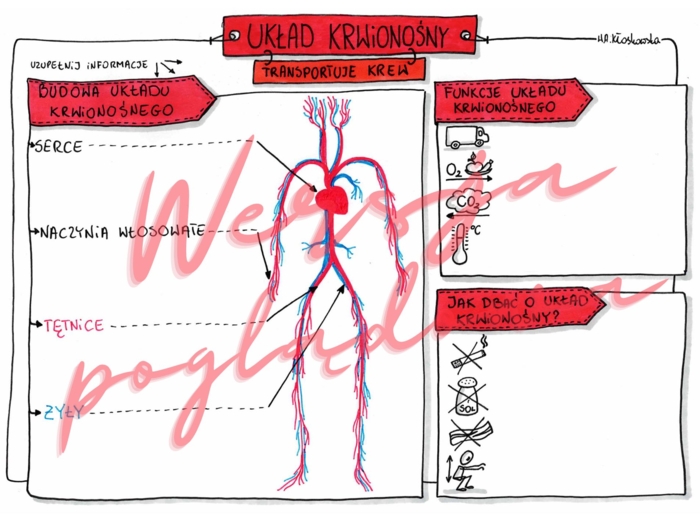 UKŁAD KRWIONOŚNY
H.A.Kłoskowska
TRANSPORTUJE KREW
UZUPEŁNIJ INFORMACJE
BUDOWA UKŁADU
KRWIONOŚNEGO
SERCE
NACZYNIA WŁOSOWATE
TĘTNICE
ŻYŁY
FUNKCJE UKŁADU
KRWIONOŚNEGO
O2
CO2
°C
JAK DBAĆ O UKŁAD
KRWIONOŚNY?
SÓL
Wersja
poglądowa